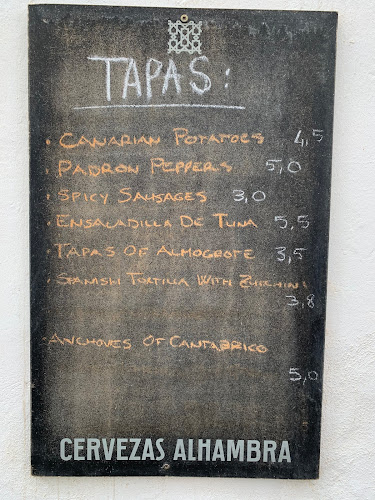 TAPAS:
• CANARIAN POTATOES 4,5
• PADRON PEPPERS 5,0
• SPICY SAUSAGES 3,0
• ENSALADILLA DE TUNA 5,5
• TAPAS OF ALMOGROTE 3,5
• SPANISH TORTILLA WITH ZUCCHINI
3,8
• ANCHOVES OF CANTABRICO
5,0
CERVEZAS ALHAMBRA